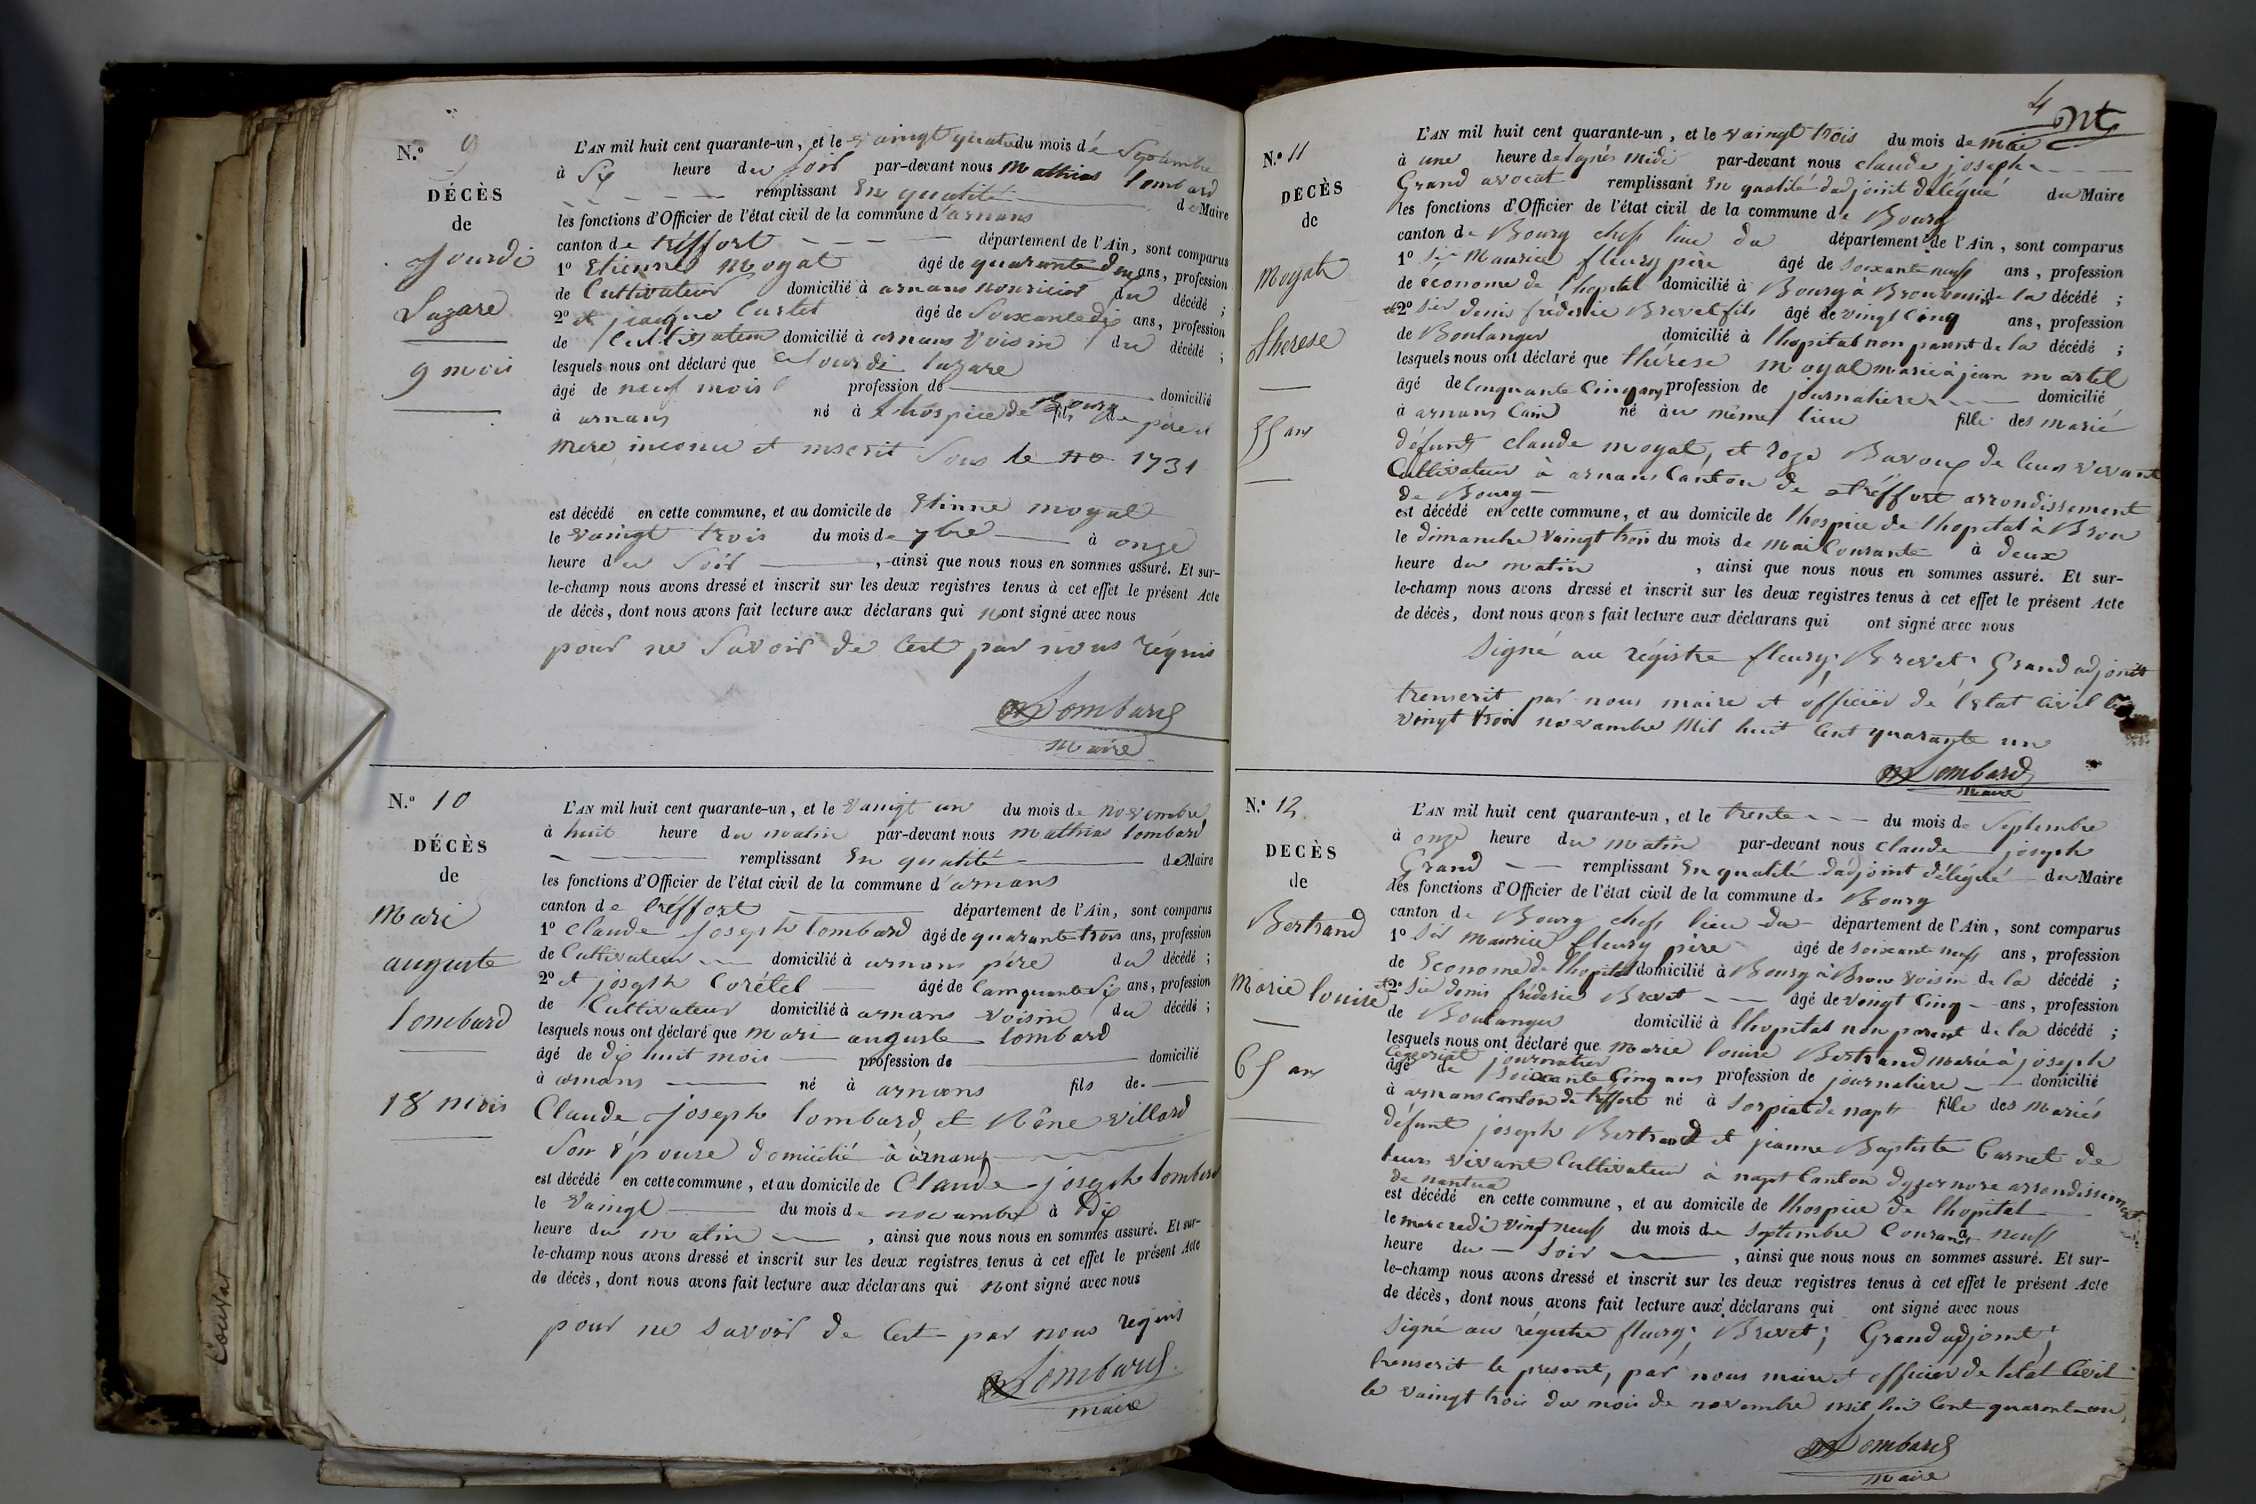 N.º 9
DÉCÈS
de
Jourdi
Lazare
9 mois
L'AN mil huit cent quarante-un, et le vaingt quatre du mois de Septambre
à Six heure du soir par-devant nous Mathias lombard
remplissant En qualité de Maire
les fonctions d'Officier de l'état civil de la commune d'arnans
canton de tréffort département de l'Ain, sont comparus
1º Etienne Moyat âgé de quarante deux ans, profession
de Cultivateur domicilié à arnans nouricier du décédé ;
2º et jacque Curtet âgé de Soixante dix ans, profession
de Cultivateur domicilié à arnans Voisin du décédé ;
lesquels nous ont déclaré que Jourdi lazare
âgé de neuf mois profession de domicilié
à arnans né à l'hospice de Bourg fils de père et
mere inconu et inscrit Sous le no 1731
est décédé en cette commune, et au domicile de Etinne moyat
le vaingt trois du mois de 7bre à onze
heure du Soir , ainsi que nous nous en sommes assuré. Et sur-
le-champ nous avons dressé et inscrit sur les deux registres tenus à cet effet le présent Acte
de décès, dont nous avons fait lecture aux déclarans qui nont signé avec nous
pour ne Savoir de Cest par nous réquis
Lombard
maire
N.º 10
DÉCÈS
de
Mari
auguste
lombard
18 mois
L'AN mil huit cent quarante-un, et le vaingt un du mois de novembre
à huit heure du matin par-devant nous mathias lombard
remplissant En qualité de Maire
les fonctions d'Officier de l'état civil de la commune d'arnans
canton de tréffort département de l'Ain, sont comparus
1º Claude Joseph lombard âgé de quarante trois ans, profession
de Cultivateur domicilié à arnans pére du décédé ;
2º et joseph Corétel âgé de Cainquante Six ans, profession
de Cultivateur domicilié à arnans voisin du décédé ;
lesquels nous ont déclaré que mari auguste lombard
âgé de dix huit mois profession de domicilié
à arnans né à arnans fils de
Claude Joseph lombard, et Rêne villard
Son épouse domicilié à arnans
est décédé en cette commune, et au domicile de Claude joseph lombard
le vaingt du mois de novambre à Dix
heure du matin , ainsi que nous nous en sommes assuré. Et sur-
le-champ nous avons dressé et inscrit sur les deux registres tenus à cet effet le présent Acte
de décès, dont nous avons fait lecture aux déclarans qui nont signé avec nous
pour ne savoir de Cest par nous requis
Lombard
maire
Couvat
4
N.º 11
DÉCÈS
de
Moyat
therese
55 ans
L'AN mil huit cent quarante-un, et le vaingt trois du mois de mai
à une heure de laprés midi par-devant nous claude joseph
Grand avocat remplissant En qualité dadjoint délégué du Maire
les fonctions d'Officier de l'état civil de la commune de Bourg
canton de Bourg cheff lieu du département de l'Ain, sont comparus
1º Sir Maurice fleury père âgé de soixante neuf ans, profession
de économe de l'hopital domicilié à Bourg à Brou voisin de la décédé ;
et 2º sir denis fréderic Brevet fils âgé de vingt Cinq ans, profession
de Boulanger domicilié à lhopital non parent de la décédé ;
lesquels nous ont déclaré que thérese moyat marié à jean martel
âgé de Cinquante Cinq ans profession de journaliere domicilié
à arnans lain né au même lieu fille des marié
défunt claude moyat, et roze Bavoux de leur vivant
Cultivateur à arnans Canton de tréffort arrondissement
de Bourg
est décédé en cette commune, et au domicile de lhospice de lhopital à Brou
le dimanche vaingt trois du mois de Mai Courant à deux
heure du matin , ainsi que nous nous en sommes assuré. Et sur-
le-champ nous avons dressé et inscrit sur les deux registres tenus à cet effet le présent Acte
de décès, dont nous avons fait lecture aux déclarans qui ont signé avec nous
Signé au régistre fleury; Brevet; Grand adjoint
trenscrit par nous maire et officier de lEstat Civil le
vingt trois novambre Mil huit Cent quarante un
Lombard
Maire
N.º 12
DECÈS
de
Bertrand
Marie louise
65 ans
L'AN mil huit cent quarante-un, et le trente du mois de Septembre
à onze heure du matin par-devant nous claude joseph
Grand remplissant En qualité dadjoint délégué du Maire
les fonctions d'Officier de l'état civil de la commune de Bourg
canton de Bourg cheff lieu du département de l'Ain, sont comparus
1º Sir Maurice fleury père âgé de soixante neuf ans, profession
de Econome de lhopital domicilié à Bourg à Brou voisin de la décédé ;
et 2º Sir denis fréderic Brevet âgé de vingt Cinq ans, profession
de Boulanger domicilié à lhopital non parent de la décédé ;
lesquels nous ont déclaré que Marie louise Bertrand marié à joseph
journalier
âgé de soixante Cinq ans profession de journaliere domicilié
à arnans canton de tréffort né à Sorpiat de napt fille des mariés
défunt joseph Bertrand et jeanne Baptiste Carnet de
leurs vivant Cultivateur à napt Canton dyzernore arrondissement
de nantua
est décédé en cette commune, et au domicile de lhospice de lhopital
le mercredi vingt neuf du mois de Septembre Courant à neuf
heure du Soir , ainsi que nous nous en sommes assuré. Et sur-
le-champ nous avons dressé et inscrit sur les deux registres tenus à cet effet le présent Acte
de décès, dont nous avons fait lecture aux déclarans qui ont signé avec nous
Signé au régistre fleury; Brevet; Grand adjoint;
trenscrit le present, par nous maire et officier de létat Civil
le vaingt trois du mois de novembre mil hui Cent quarante un
Lombard
maire